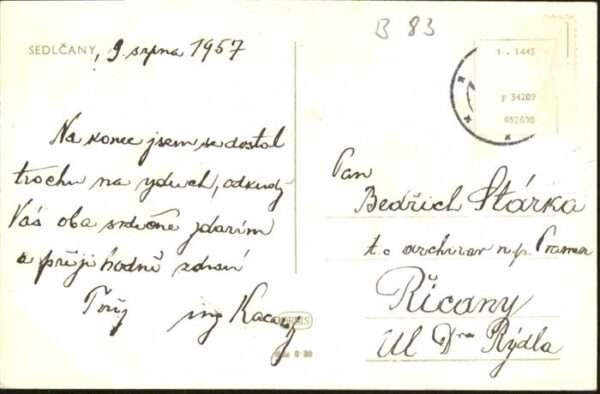 B 83
SEDLČANY, 9. srpna 1957
1 - 1445
P 34209
Na konec jsem se dostal
trochu na vzduch, odkudž
Vás oba srdečně zdravím
a přeji hodně zdraví
ing
Pan
Bedřich Stárka
t.č. archivář n.p. Pramen
Říčany
Ul Dra Rýdla
ORBIS